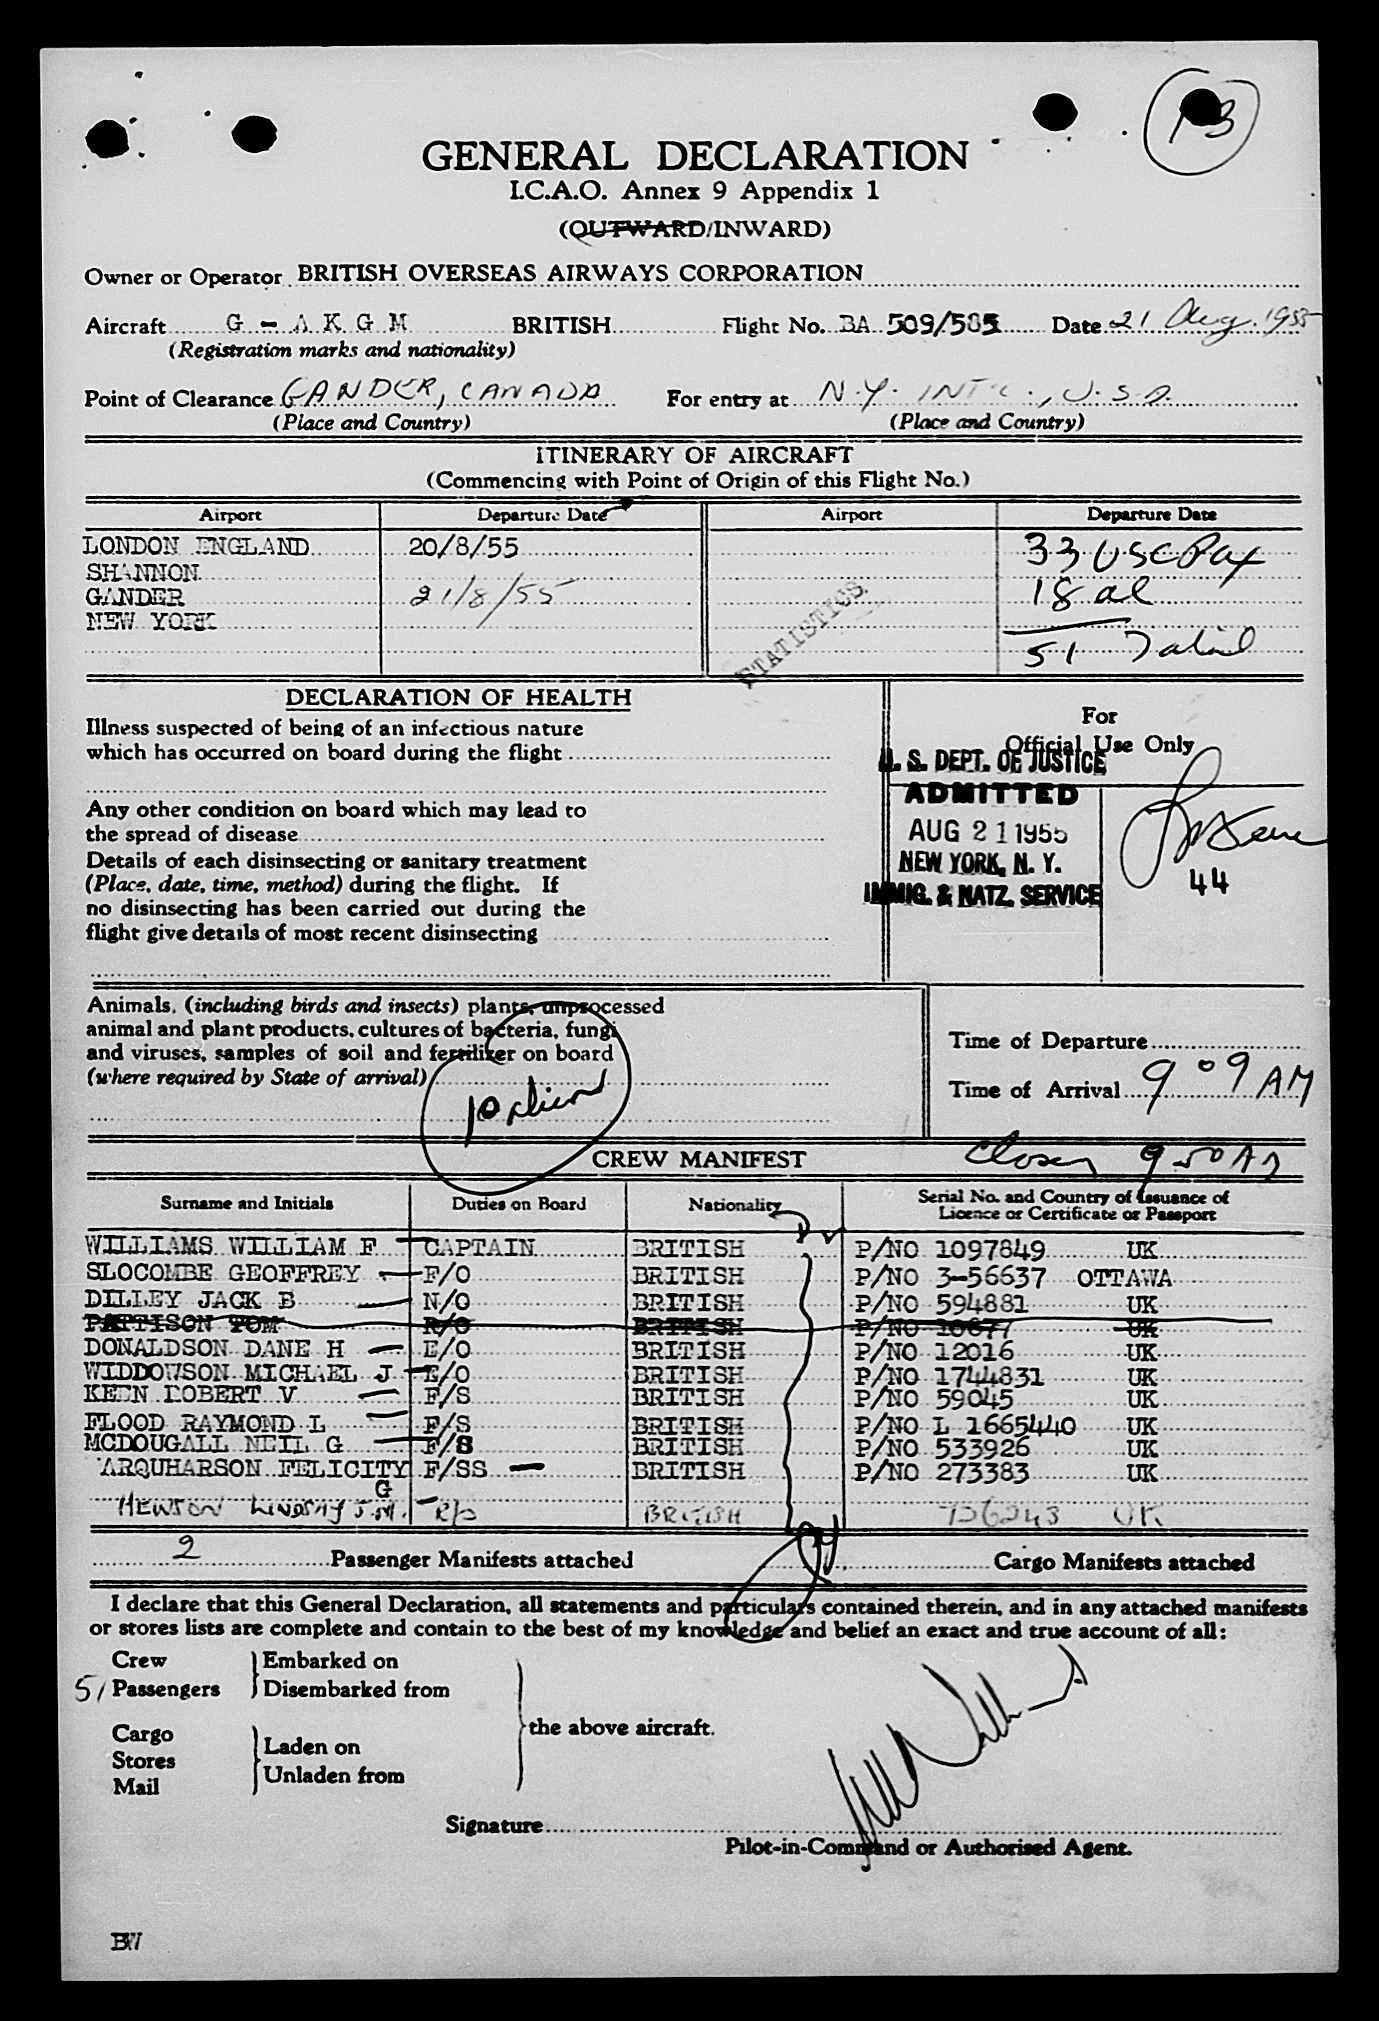 13
GENERAL DECLARATION
I.C.A.O. Annex 9 Appendix 1
(OUTWARD/INWARD)
Owner or Operator BRITISH OVERSEAS AIRWAYS CORPORATION
Aircraft G - A K G M BRITISH Flight No. BA 509/585 Date 21 Aug. 1955
(Registration marks and nationality)
Point of Clearance GANDER, CANADA For entry at N.Y. INT'L., U.S.A.
(Place and Country) (Place and Country)
ITINERARY OF AIRCRAFT
(Commencing with Point of Origin of this Flight No.)
Airport Departure Date Airport Departure Date
LONDON ENGLAND 20/8/55 33 USC Pax
SHANNON
GANDER 21/8/55 18 al
NEW YORK
STATISTICS
51 Total
DECLARATION OF HEALTH
Illness suspected of being of an infectious nature
which has occurred on board during the flight
Any other condition on board which may lead to
the spread of disease
Details of each disinsecting or sanitary treatment
(Place, date, time, method) during the flight. If
no disinsecting has been carried out during the
flight give details of most recent disinsecting
For
Official Use Only
U. S. DEPT. OF JUSTICE
ADMITTED
AUG 21 1955
NEW YORK, N. Y.
IMMIG. & NATZ. SERVICE
44
Animals, (including birds and insects) plants, unprocessed
animal and plant products, cultures of bacteria, fungi
and viruses, samples of soil and fertilizer on board
(where required by State of arrival)
Time of Departure
Time of Arrival 9 09 AM
CREW MANIFEST
Closed 9 50 AM
Surname and Initials Duties on Board Nationality Serial No. and Country of Issuance of
Licence or Certificate or Passport
WILLIAMS WILLIAM F CAPTAIN BRITISH P/NO 1097849 UK
SLOCOMBE GEOFFREY F/O BRITISH P/NO 3-56637 OTTAWA
DILLEY JACK B N/O BRITISH P/NO 594881 UK
PATTISON TOM R/O BRITISH P/NO 10677 UK
DONALDSON DANE H E/O BRITISH P/NO 12016 UK
WIDDOWSON MICHAEL J E/O BRITISH P/NO 1744831 UK
KEEN ROBERT V F/S BRITISH P/NO 59045 UK
FLOOD RAYMOND L F/S BRITISH P/NO L 1665440 UK
MCDOUGALL NEIL G F/S BRITISH P/NO 533926 UK
ARQUHARSON FELICITY G F/SS BRITISH P/NO 273383 UK
HEWSON LINDSAY J.M. R/O BRITISH 736243 UK
2 Passenger Manifests attached Cargo Manifests attached
I declare that this General Declaration, all statements and particulars contained therein, and in any attached manifests
or stores lists are complete and contain to the best of my knowledge and belief an exact and true account of all:
Crew Embarked on
51 Passengers Disembarked from
the above aircraft.
Cargo
Stores Laden on
Mail Unladen from
Signature
Pilot-in-Command or Authorised Agent.
BW